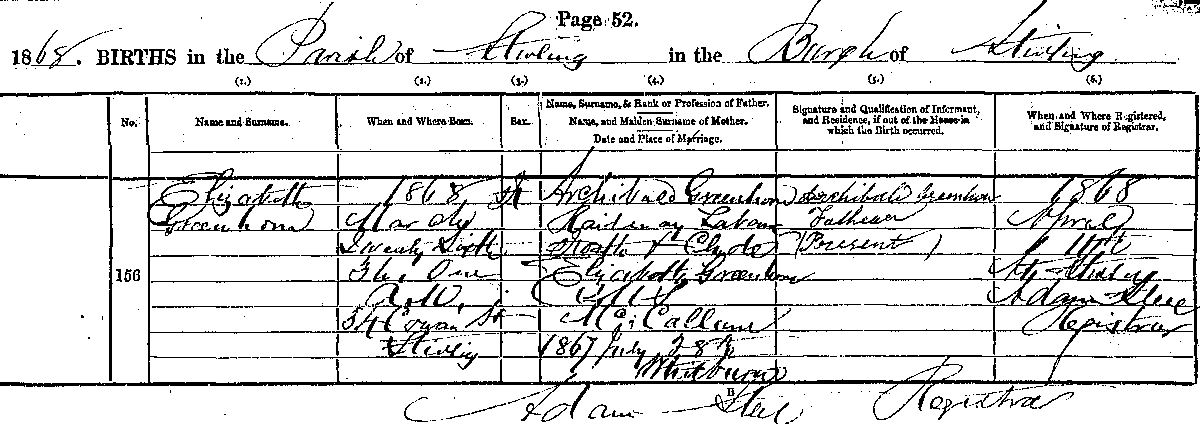 Page 52.
1868. BIRTHS in the Parish of Stirling in the Burgh of Stirling
(1.) (2.) (3.) (4.) (5.) (6.)
No.
Name and Surname.
When and Where Born.
Sex.
Name, Surname, & Rank or Profession of Father.
Name, and Maiden Surname of Mother.
Date and Place of Marriage.
Signature and Qualification of Informant,
and Residence, if out of the House in
which the Birth occurred.
When and Where Registered,
and Signature of Registrar.
156
Elizabeth
Greenhorn
1868
March
Twenty Sixth
One
54 Cowan St
Stirling
Archibald Greenhorn
Railway Labour
Forth & Clyde
Elizabeth Greenhorn
McCallum
1867 July 28th
Whitburn
Archibald Greenhorn
Father
(Present)
1868
April
At Stirling
Adam Steel
Registrar
Adam Steel Registrar